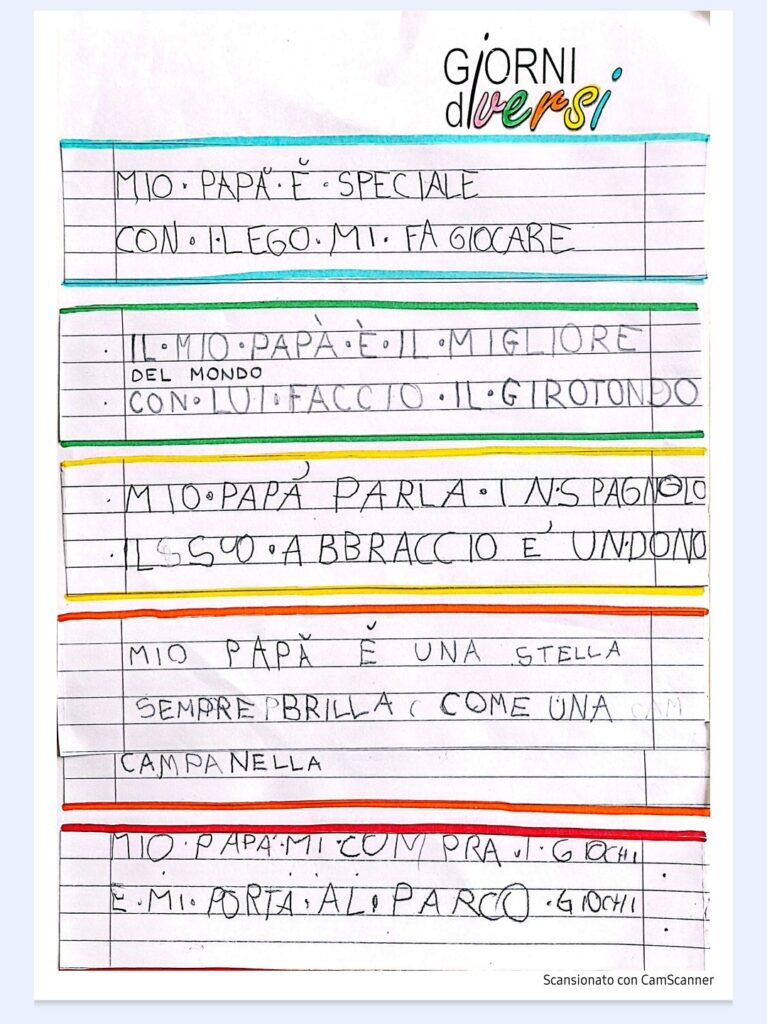 GiORNI
diversi
MIO·PAPĂ·Ĕ·SPECIALE
CON·I·LEGO·MI·FA GIOCARE
·IL·MIO·PAPÀ·È·IL·MIGLIORE
DEL MONDO
·CON·LUI·FACCIO·IL·GIROTONDO
·MIO·PAPÀ PARLA·IN·SPAGNOLO
·IL SUO·ABBRACCIO E' UN·DONO
MIO PAPĂ Ĕ UNA STELLA
SEMPRE BRILLA COME UNA
CAMPANELLA
MIO·PAPA'·MI·COMPRA·I·GIOCHI
E·MI·PORTA·AL·PARCO·GIOCHI
Scansionato con CamScanner